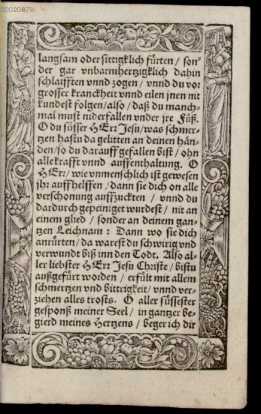 langsam oder sittigklich fürten / son-
der gar vnbarmhertzigklich dahin
schlaifften vnnd zogen / vnnd du vor
grosser kranckheit vnnd eilen jnen nit
kundest folgen / also / daß du manch-
mal must niderfallen vnder jre Füß.
O du süsser HErr Jesu / was schmer-
tzen hastu da gelitten an deinen hän-
den / so du darauff gefallen bist / ohn
alle krafft vnnd auffenthaltung. O
HErr / wie vnmenschlich ist gewesen
jhr auffhelffen / dann sie dich on alle
verschonung auffzuckten / vnnd du
dardurch gepeiniget wurdest / nit an
einem glied / sonder an deinem gan-
tzen Leichnam : Dann wo sie dich
anrürten / da warest du schwirig vnd
verwundt biß inn den Todt. Also al-
ler liebster HErr Jesu Christe / bistu
außgefürt worden / erfült mit allem
schmertzen vnd bittrigkeit / vnnd ver-
ziehen alles trosts. O aller süssester
gesponß meiner Seel / in gantzer be-
gierd meines Hertzens / beger ich dir